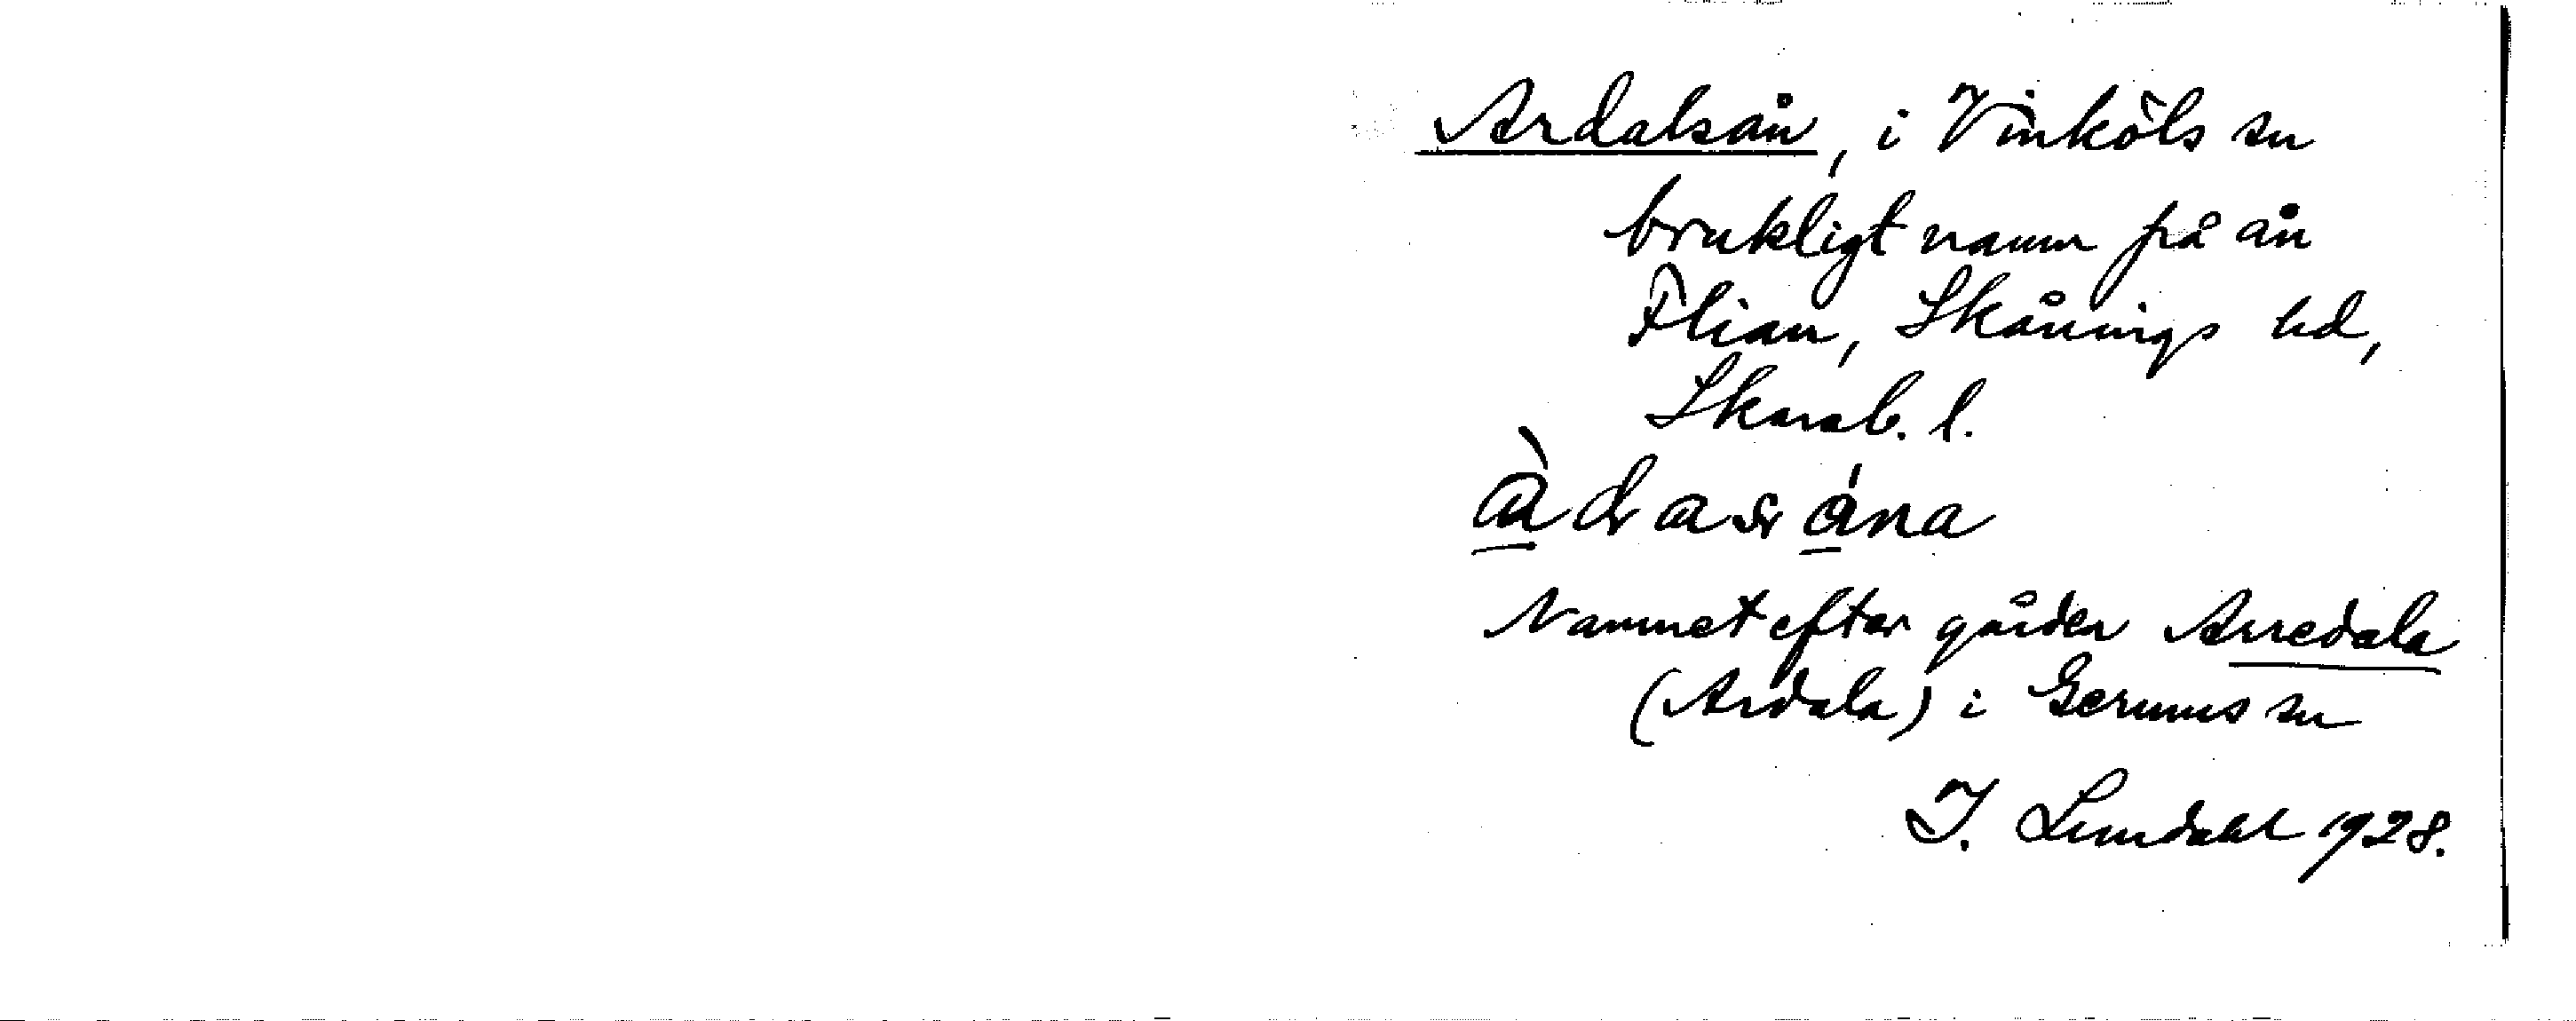 Ardalsån, i Vinköls sn
brukligt namn på ån
Flian, Skånings hd,
Skarab. l.
Namnet efter gården Arredala
(Ardala) i Gerums sn
I. Lundahl 1928.